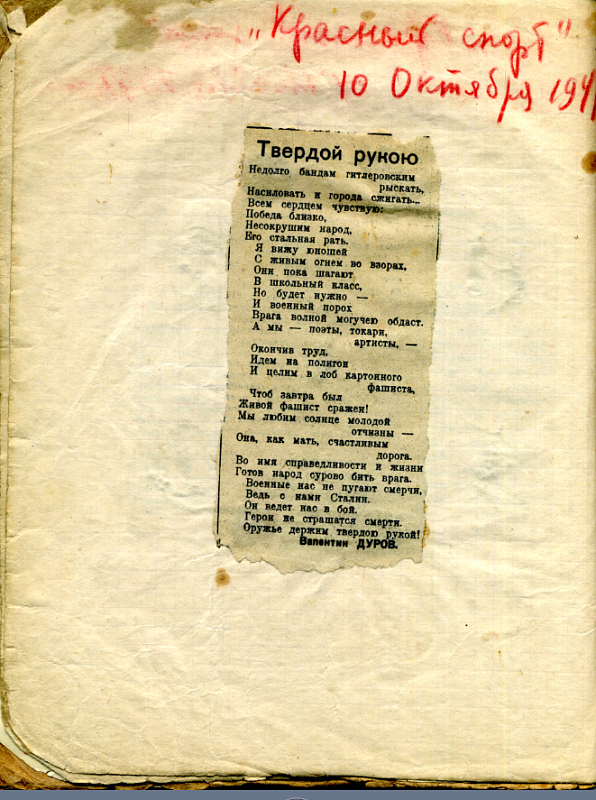 „Красный спорт"
10 Октября 194
Твердой рукою
Недолго бандам гитлеровским
рыскать,
Насиловать и города сжигать...
Всем сердцем чувствую:
Победа близко,
Несокрушим народ,
Его стальная рать.
Я вижу юношей
С живым огнем во взорах,
Они пока шагают
В школьный класс,
Но будет нужно —
И военный порох
Врага волной могучею обдаст.
А мы — поэты, токари,
артисты, —
Окончив труд,
Идем на полигон
И целим в лоб картонного
фашиста,
Чтоб завтра был
Живой фашист сражен!
Мы любим солнце молодой
отчизны —
Она, как мать, счастливым
дорога.
Во имя справедливости и жизни
Готов народ сурово бить врага.
Военные нас не пугают смерчи,
Ведь с нами Сталин.
Он ведет нас в бой.
Герои не страшатся смерти.
Оружье держим твердою рукой!
Валентин ДУРОВ.